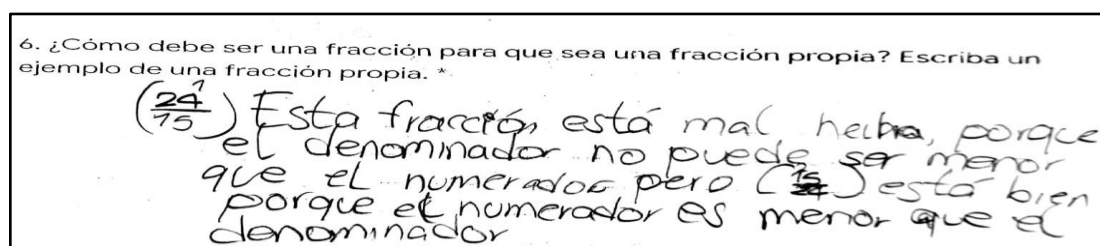 6. ¿Cómo debe ser una fracción para que sea una fracción propia? Escriba un
ejemplo de una fracción propia. *
(24/15) Esta fracción está mal hecha, porque
el denominador no puede ser menor
que el numerador pero (15/24) está bien
porque el numerador es menor que el
denominador